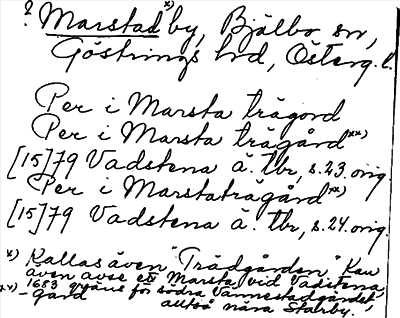 ? Marstad *) by, Bjälbo sn,
Göstrings hrd, Österg. l.
Per i Marsta trägord
Per i Marsta trägård **)
[15]79 Vadstena ä. tbr, s. 23. orig.
Per i Marstaträgård **)
[15]79 Vadstena ä. tbr, s. 24. orig.
*) Kallas även "Trädgården" Kan
även avse ett Marsta vid Vadstena,
1683 gräns för södra Vannestadgärdet,
**) -gård alltså nära Starby.